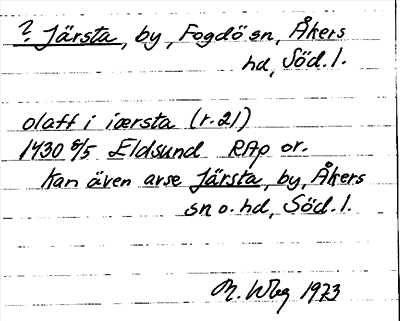 ? Järsta, by, Fogdö sn, Åkers
hd, Söd. l.
olaff i iærsta (r. 21)
1430 8/5 Eldsund RAp or.
Kan även avse Järsta, by, Åkers
sn o. hd, Söd. l.
M. Wbg 1973